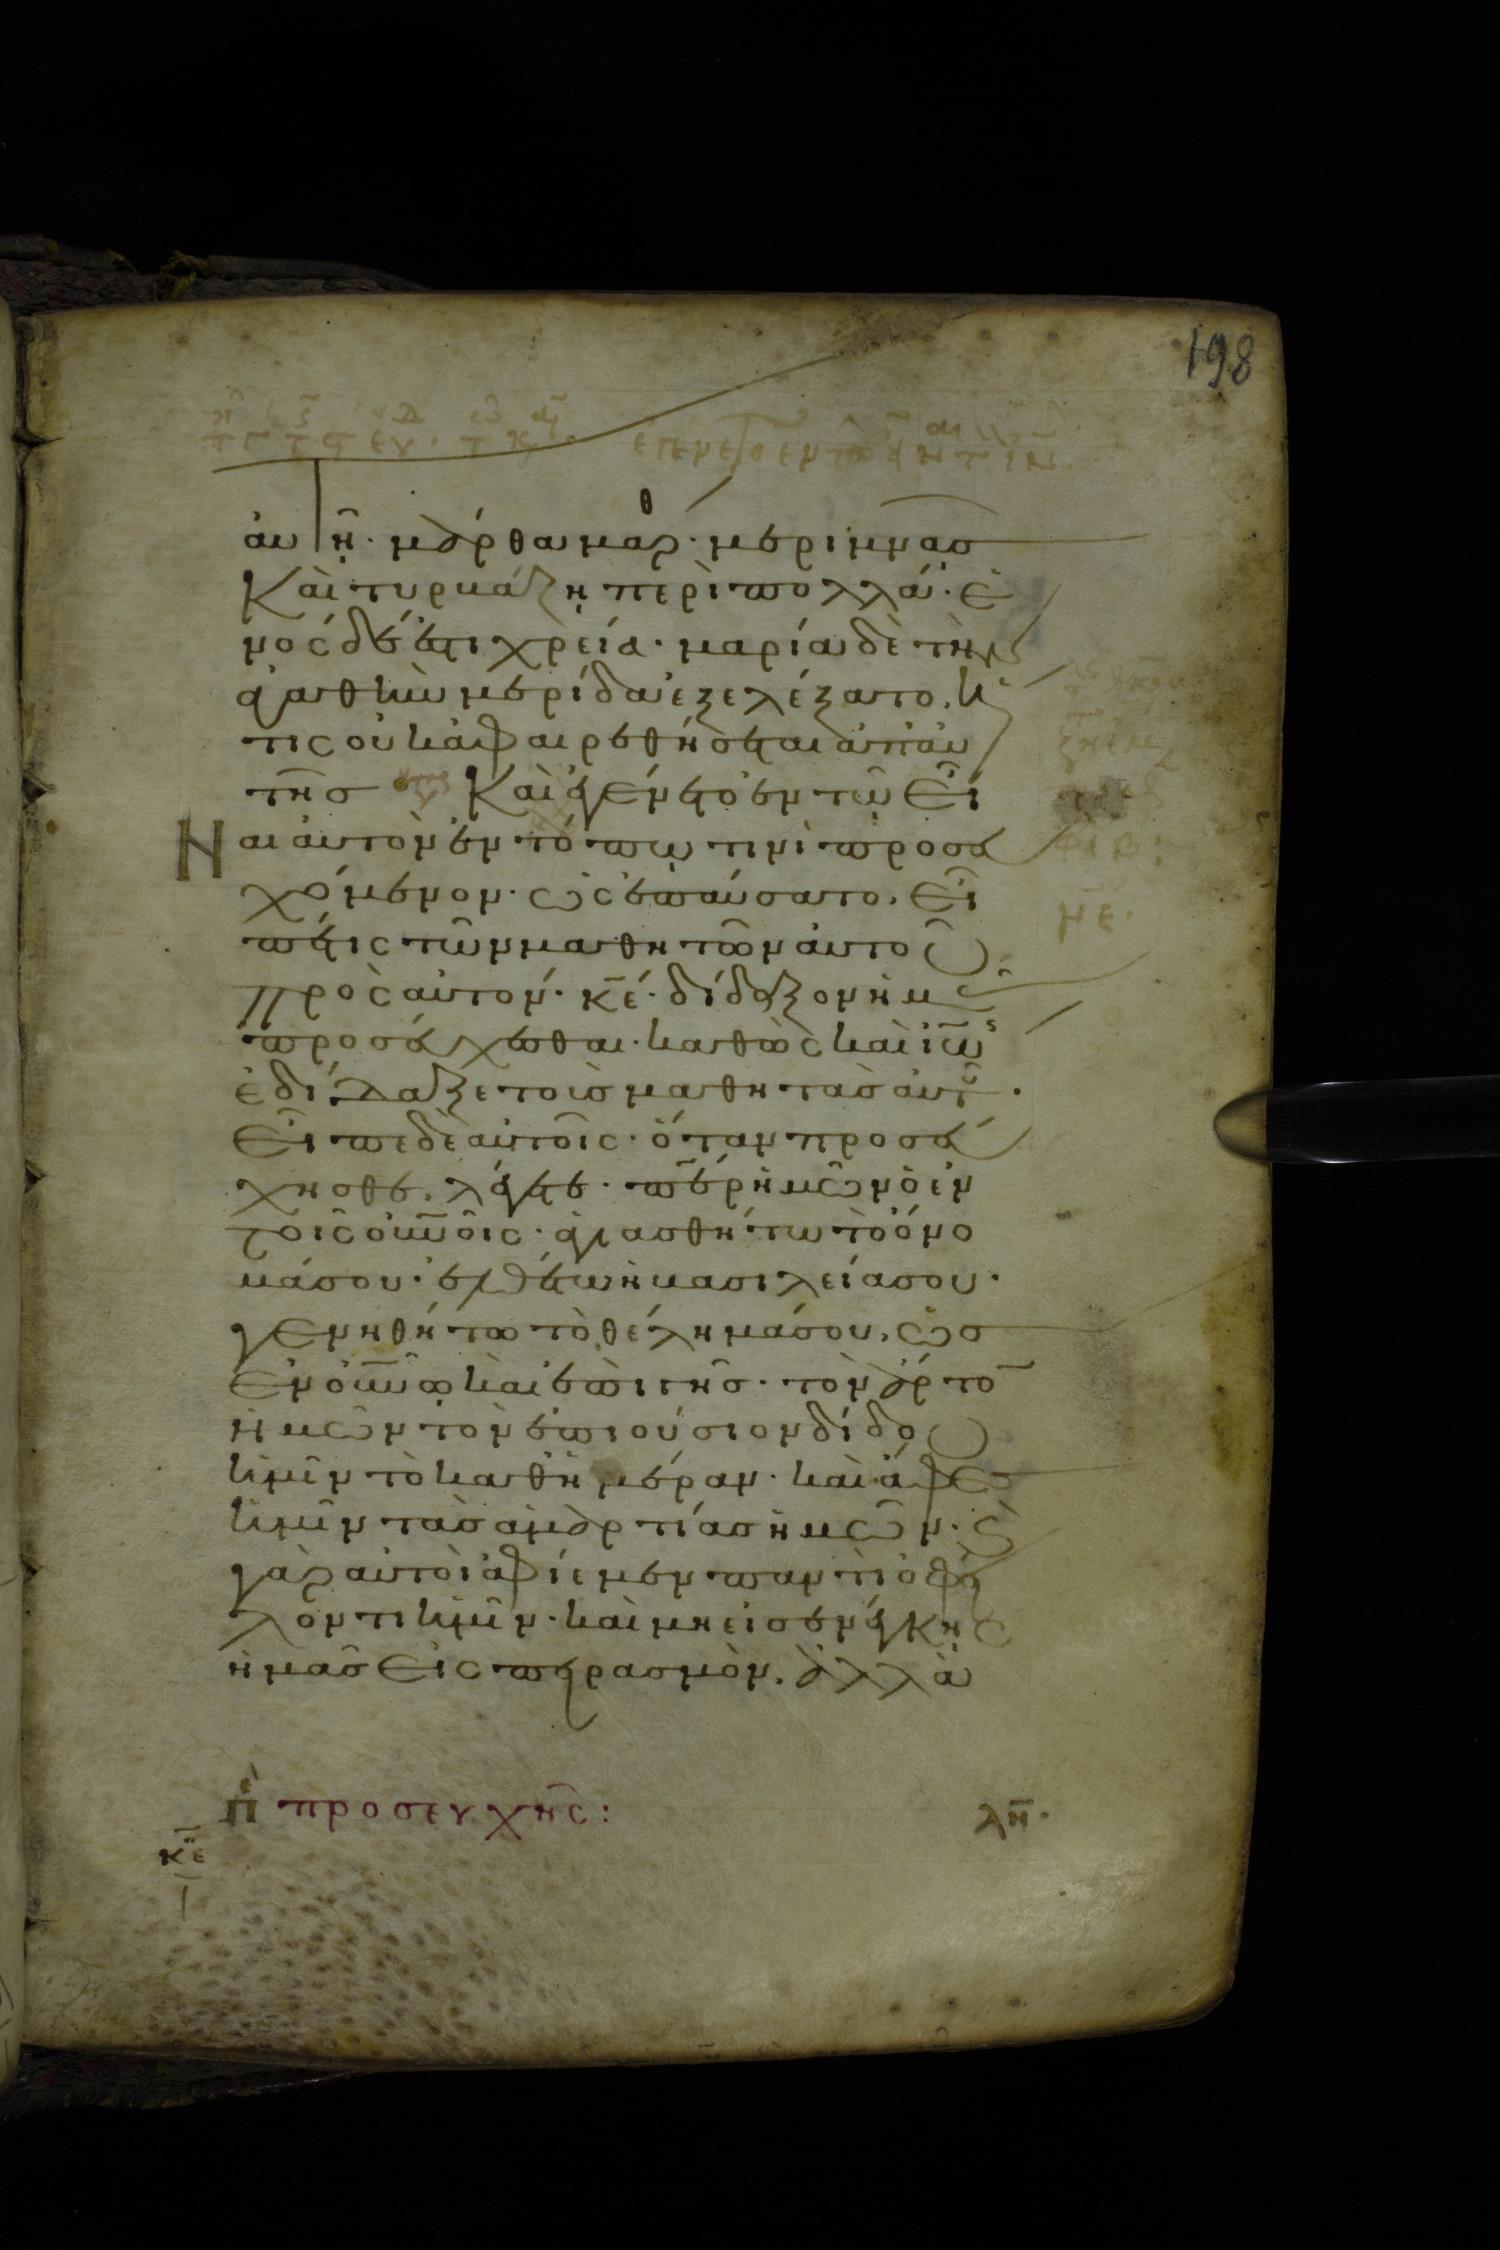 198
αυτῆ· μάρθα μάρθ· μεριμνᾶσ
Καὶ τυρβάζη περὶ πολλά· ἑ
νός δέ ἐστι χρεία· μαρία δὲ τὴν
ἀγαθὴν μερίδα ἐξελέξατο, ἥ
τις οὐκ ἀφαιρεθήσεται ἀπ' αυ
τῆσ Καὶ ἐγένετο ἐν τῶ εἶ
Ναι αυτὸν ἐν τόπω τινὶ προσευ
χόμενον· ὡς ἐπαύσατο, εἶ
πέ τις τῶν μαθητῶν αυτοῦ
πρὸς αυτόν· κ̅ε̅· δίδαξον ἡμᾶς
προσεύχεσθαι· καθὼς καὶ ἰω
ἐδίδαξε τοὺσ μαθητὰσ αυτοῦ·
Εἶπε δὲ αυτοῖς· ὅταν προσεύ
χησθε, λέγετε· π̅ε̅ρ ἡμῶν ὁ ἐν
τοῖς ου̅νοις· ἁγιασθήτω τὸ ὄνο
μά σου· ἐλθέτω ἡ βασιλεία σου·
γενηθήτω τὸ θέλημά σου, ὡσ
ἐν ου̅νῶ καὶ ἐπὶ τῆσ γῆσ· τὸν ἄρτο̅
ἡμῶν τὸν ἐπιούσιον δίδου
ἡμῖν τὸ καθ' ἡμέραν· καὶ ἄφεσ
ἡμῖν τὰσ ἁμαρτίασ ἡμῶν· ϗ
γὰρ αυτοὶ ἀφίεμεν παντὶ ὀφεί
λοντι ἡμῖν· καὶ μὴ εἰσενέγκης
ἡμᾶσ εἰς πειρασμόν, ἀλλὰ
πε προσευχῆς:
λη̅·